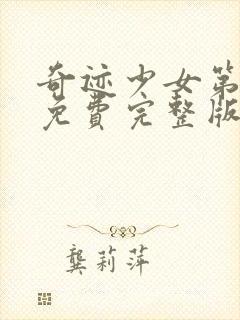 奇迹少女第
免費完整版
龔莉萍